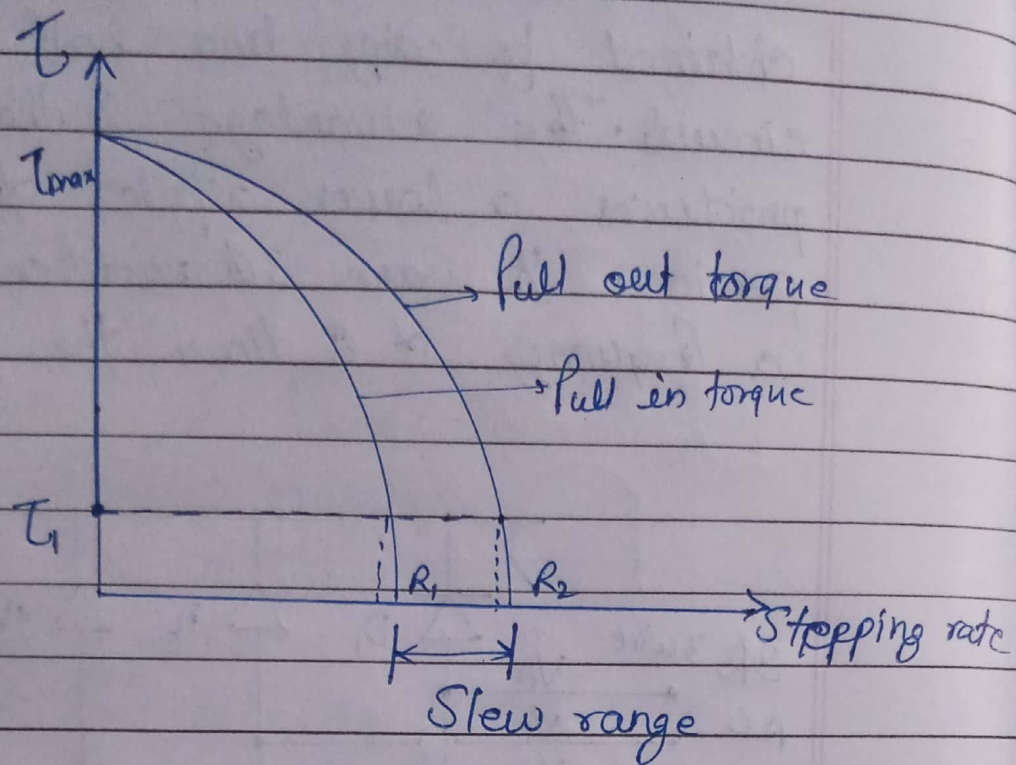 τ
τmax
Pull out torque
Pull in torque
τ₁
R₁
R₂
Stepping rate
Slew range